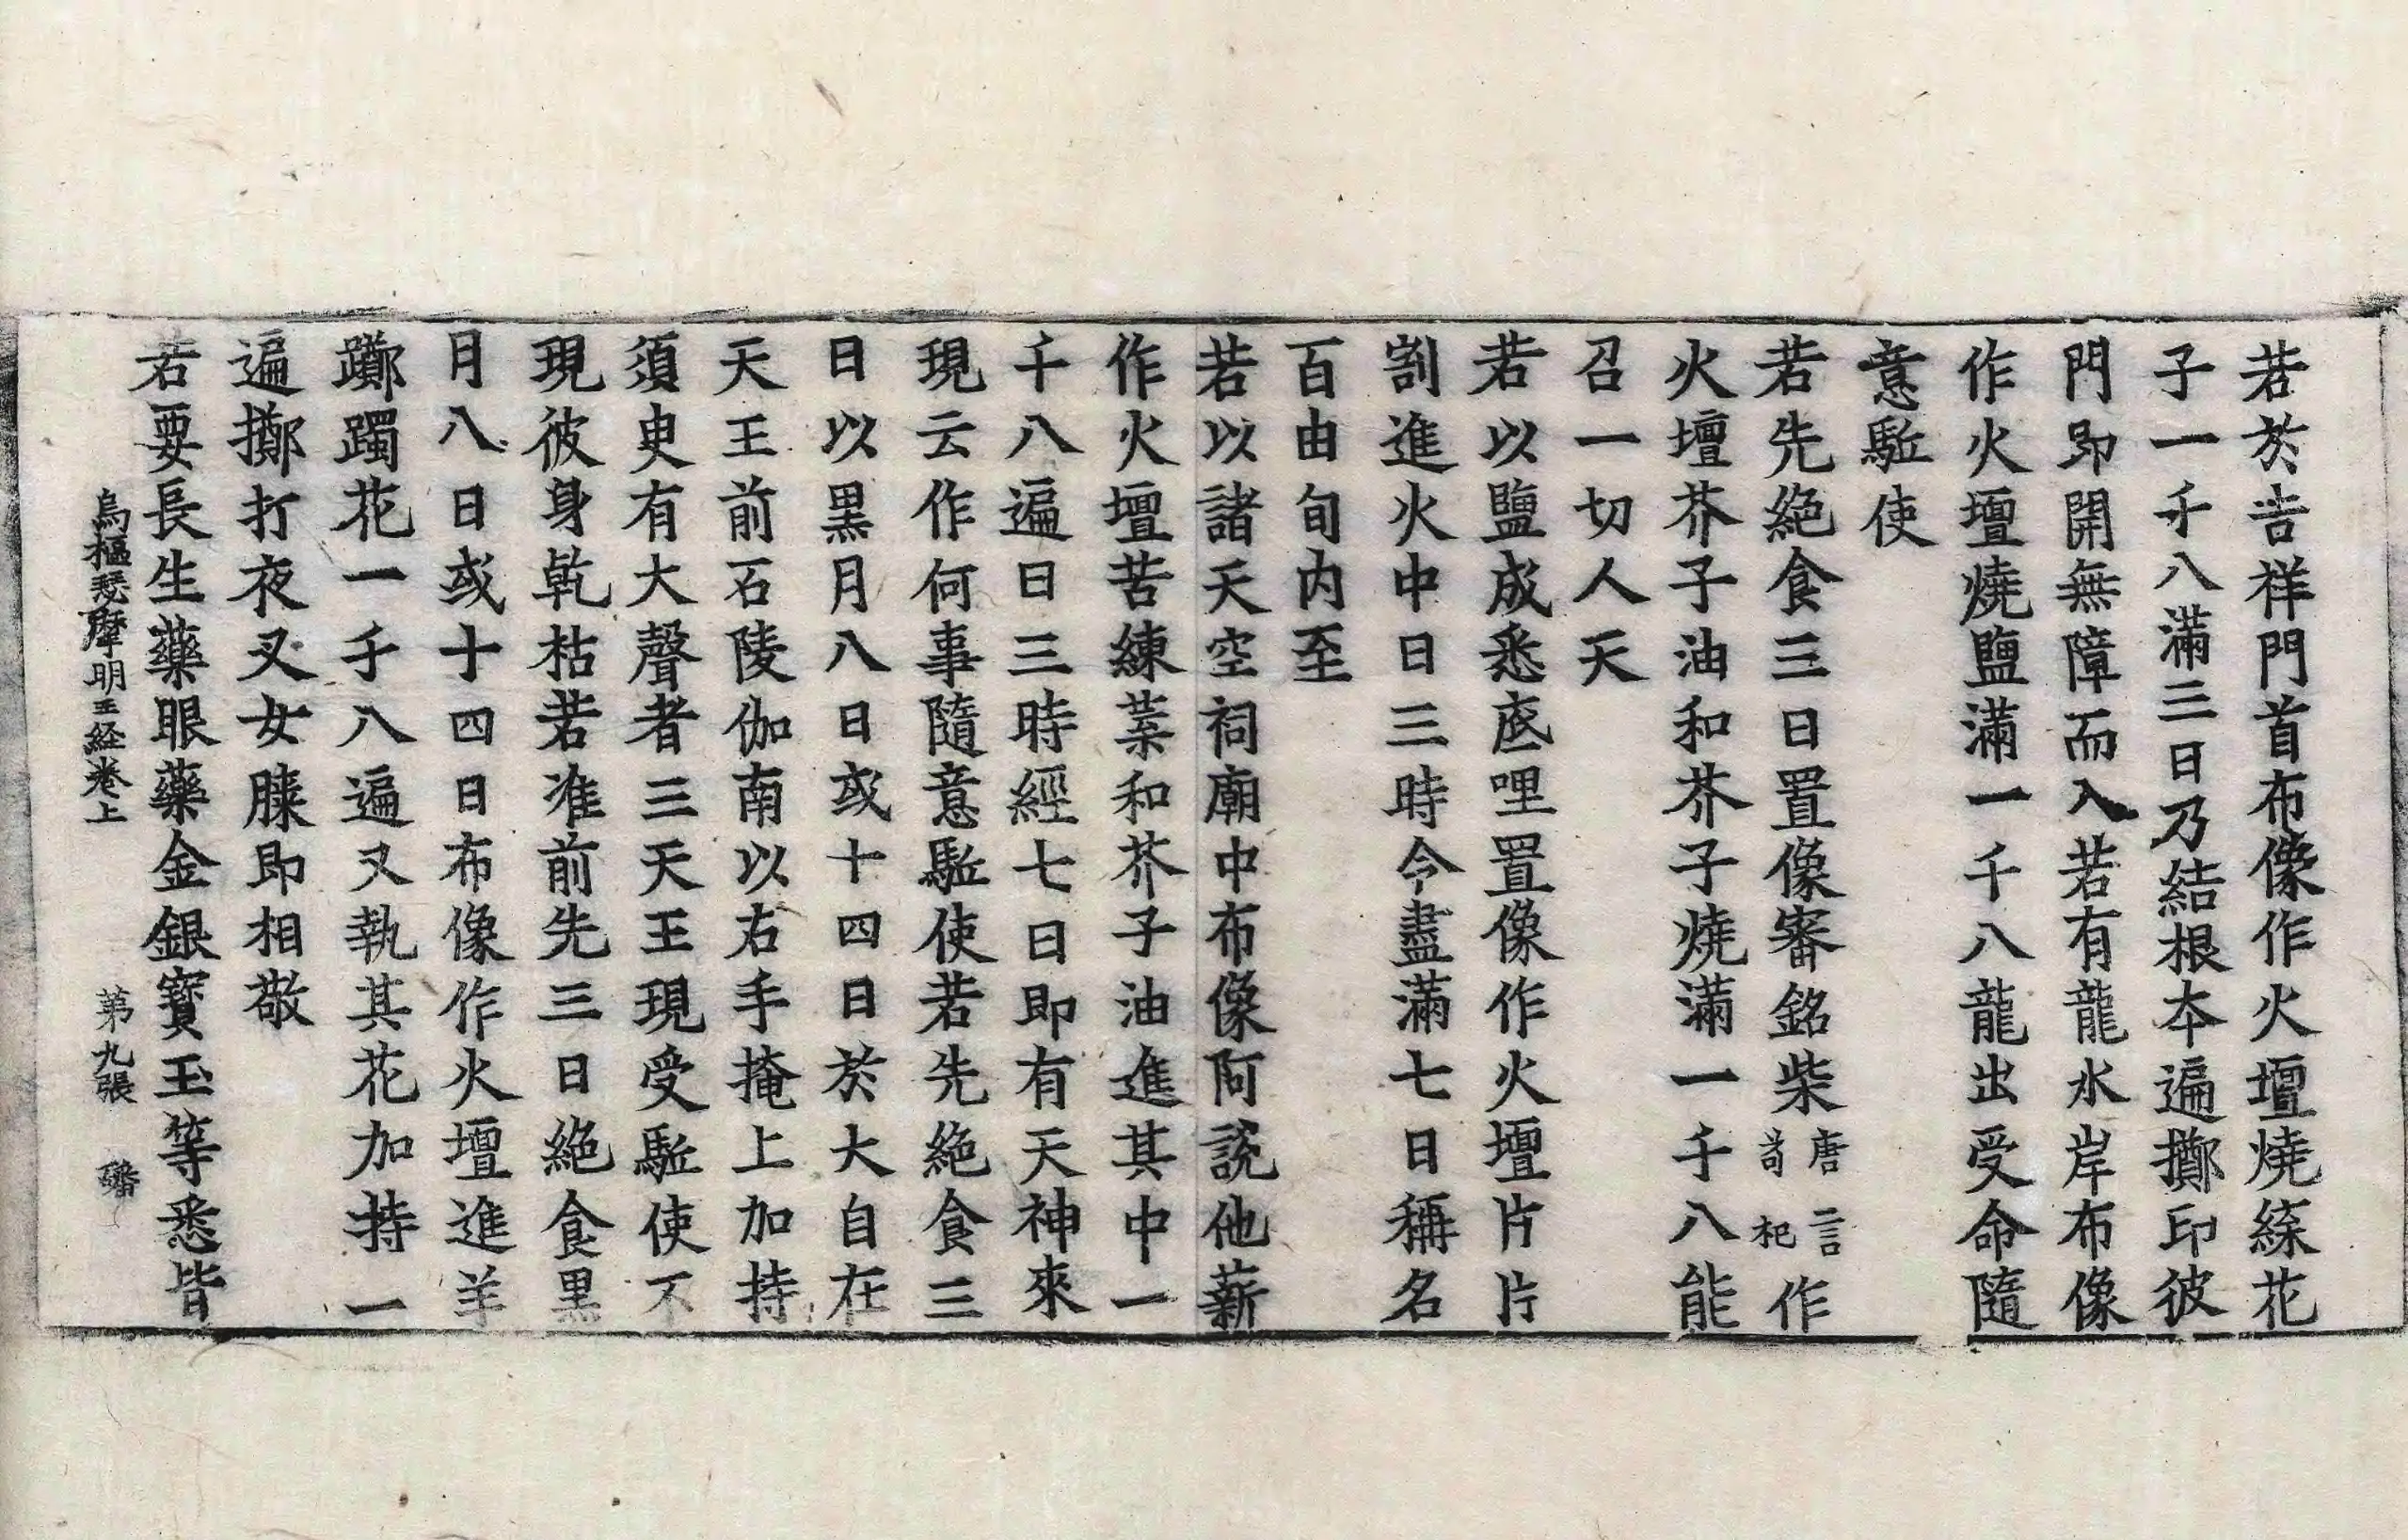 若於吉祥門首布像作火壇燒綵花
子一千八滿三日乃結根本遍擲印彼
門即開無障而入若有龍水岸布像
作火壇燒鹽滿一千八龍出受命隨
意駈使
若先絶食三日置像審銘柴唐言苟杞作
火壇芥子油和芥子燒滿一千八能
召一切人天
若以鹽成悉底哩置像作火壇片片
割進火中日三時令盡滿七日稱名
百由旬内至
若以諸天空祠廟中布像阿説他薪
作火壇苦練葉和芥子油進其中一
千八遍日三時經七日即有天神來
現云作何事隨意駈使若先絶食三
日以黒月八日或十四日於大自在
天王前石陵伽南以右手掩上加持
須臾有大聲者三天王現受駈使不
現彼身乾枯若准前先三日絶食黒
月八日或十四日布像作火壇進羊
躑躅花一千八遍又執其花加持一
遍擲打夜叉女膝即相敬
若要長生藥眼藥金銀寳玉等悉皆
烏樞瑟摩明王経卷上 第九張 磻